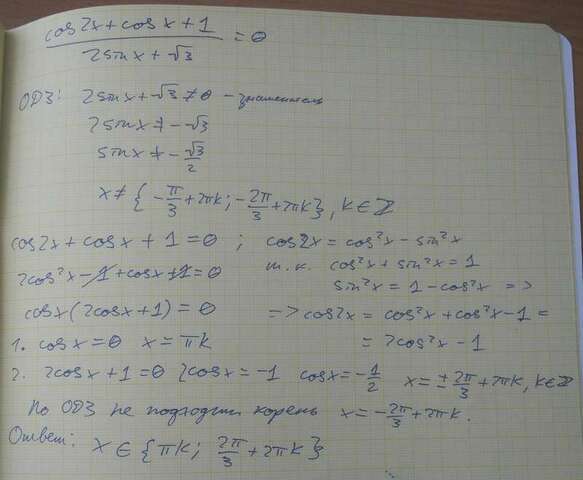 (cos2x + cosx + 1) / (2sinx + √3) = 0
ОДЗ: 2sinx + √3 ≠ 0 - знаменатель
2sinx ≠ -√3
sinx ≠ -√3/2
x ≠ {-π/3 + 2πk; -2π/3 + 2πk}, k∈Z
cos2x + cosx + 1 = 0 ; cos2x = cos²x - sin²x
2cos²x - 1 + cosx + 1 = 0 т.к. cos²x + sin²x = 1
sin²x = 1 - cos²x =>
cosx(2cosx + 1) = 0 => cos2x = cos²x + cos²x - 1 =
1. cosx = 0 x = πk = 2cos²x - 1
2. 2cosx + 1 = 0 2cosx = -1 cosx = -1/2 x = ±2π/3 + 2πk, k∈Z
По ОДЗ не подходит корень x = -2π/3 + 2πk.
Ответ: x ∈ {πk; 2π/3 + 2πk}